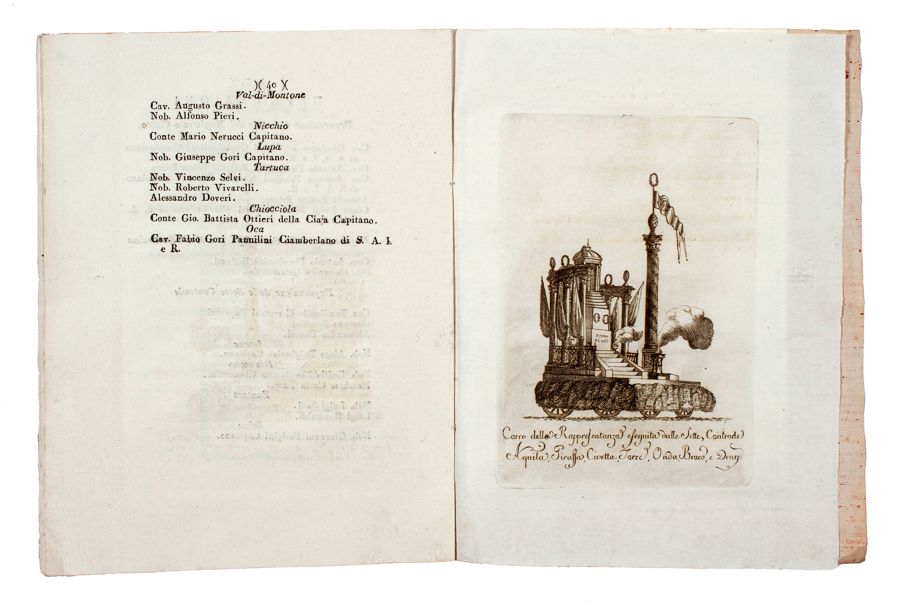 )( 40 )(
Val-di-Montone
Cav. Augusto Grassi.
Nob. Alfonso Pieri.
Nicchio
Conte Mario Nerucci Capitano.
Lupa
Nob. Giuseppe Gori Capitano.
Tartuca
Nob. Vincenzo Selvi.
Nob. Roberto Vivarelli.
Alessandro Doveri.
Chiocciola
Conte Gio. Battista Ottieri della Ciaja Capitano.
Oca
Cav. Fabio Gori Pannilini Ciamberlano di S. A. I.
e R.
Carro della Rappresentanza eseguita dalle Sette, Contrade
Aquila, Giraffa, Civetta, Torre, Onda Bruco, e Drag.